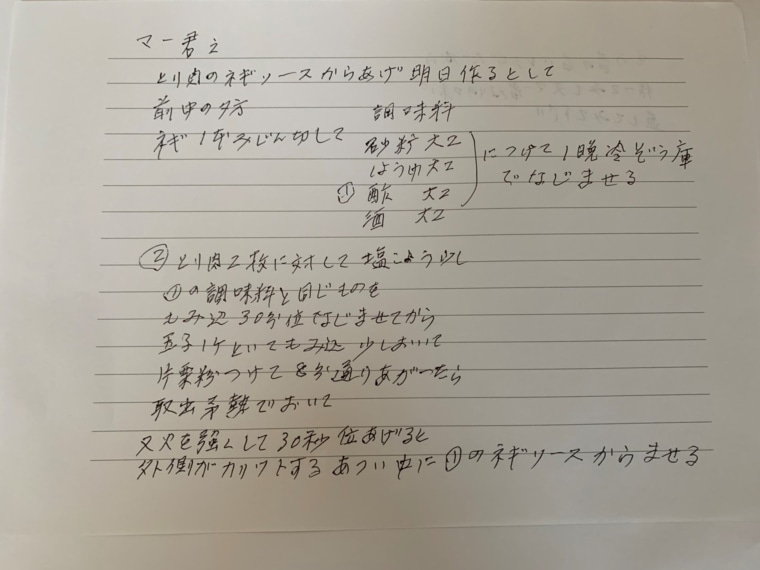 マー君え
とり肉のネギソースからあげ 明日作るとして
前中の夕方 調味料
ネギ1本みじん切して
砂糖 大2
しょうゆ 大2
① 酢 大2
酒 大2
につけて1晩冷ぞう庫
でなじませる
② とり肉2枚に対して塩こしょう少し
①の調味料と同じものを
もみ込 30分位なじませてから
玉子1ケといてもみ込 少しおいて
片栗粉つけて8分通りあがったら
取出予熱でおいて
又火を強くして30秒位あげると
外側がカリットする あつい中に①のネギソースからませる